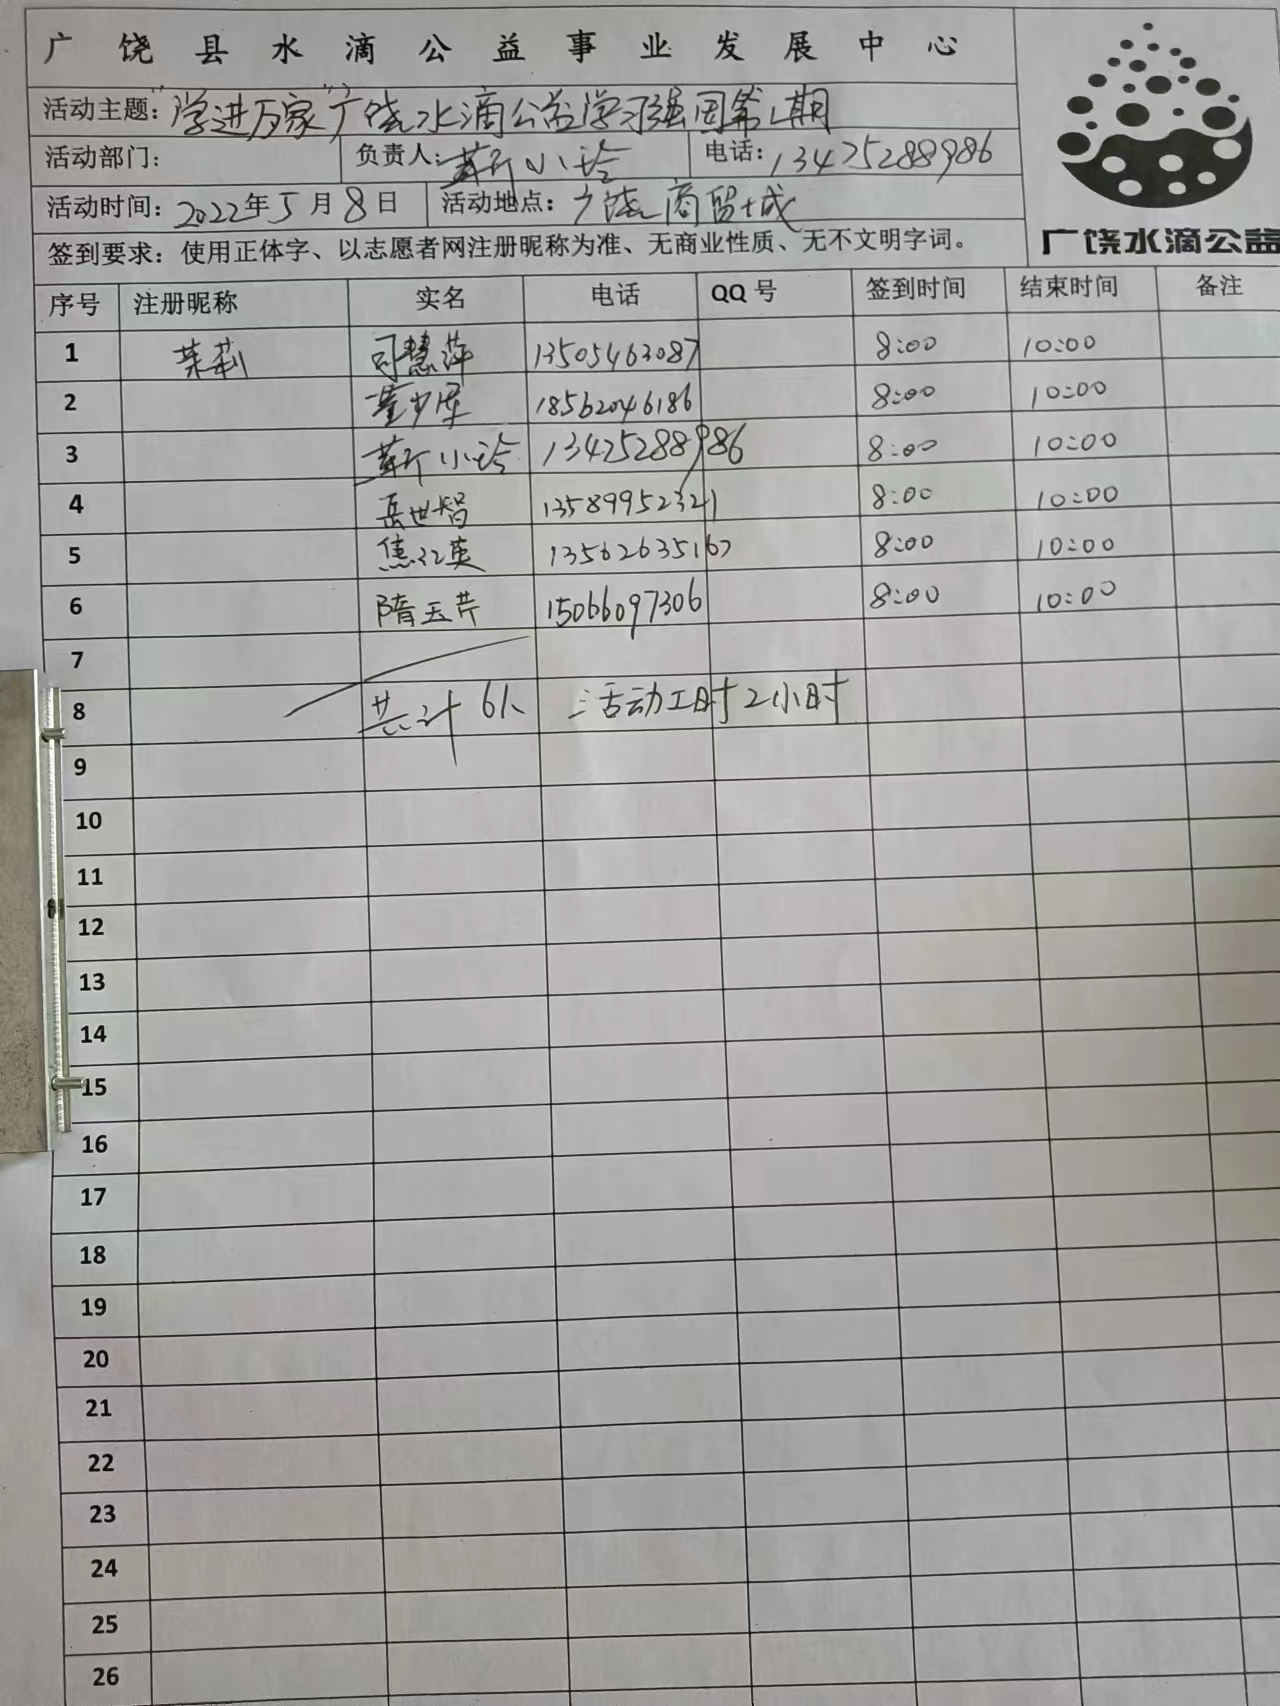 广饶县水滴公益事业发展中心
活动主题："学进万家"广饶水滴公益学习强国第 期
活动部门： 负责人：靳小玲 电话：13475288986
活动时间：2022年5月8日 活动地点：广饶商贸城
签到要求：使用正体字、以志愿者网注册昵称为准、无商业性质、无不文明字词。
广饶水滴公益
序号 注册昵称 实名 电话 QQ号 签到时间 结束时间 备注
1 茉莉 司慧萍 13505463087 8:00 10:00
2 董 18562046186 8:00 10:00
3 靳小玲 13475288986 8:00 10:00
4 岳世智 13589952321 8:00 10:00
5 焦红英 13562635167 8:00 10:00
6 隋玉芹 15066097306 8:00 10:00
7
8 共计6人 活动工时2小时
9
10
11
12
13
14
15
16
17
18
19
20
21
22
23
24
25
26